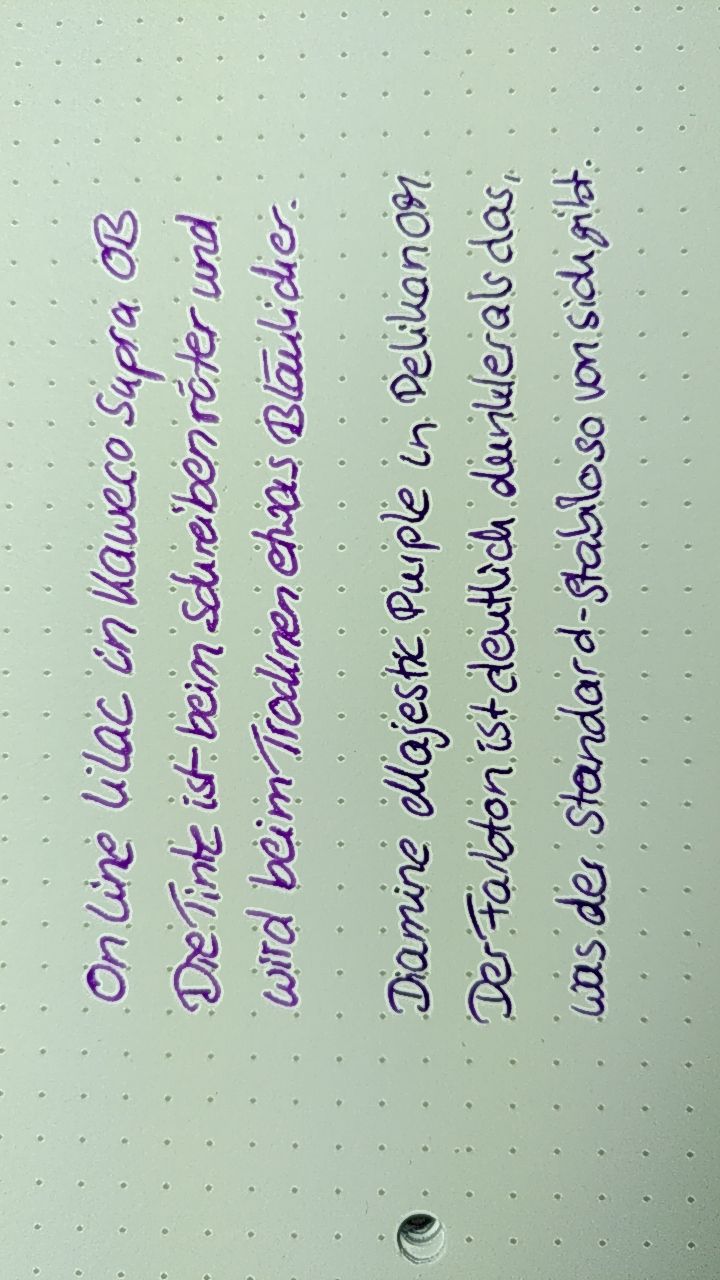 On Line Lilac in Kaweco Supra OB
Die Tinte ist beim Schreiben röter und
wird beim Trocknen etwas Bläulicher.
Diamine Majestic Purple in Pelikan OM
Der Farbton ist deutlich dunkler als das,
was der standard-stabilo so von sich gibt.